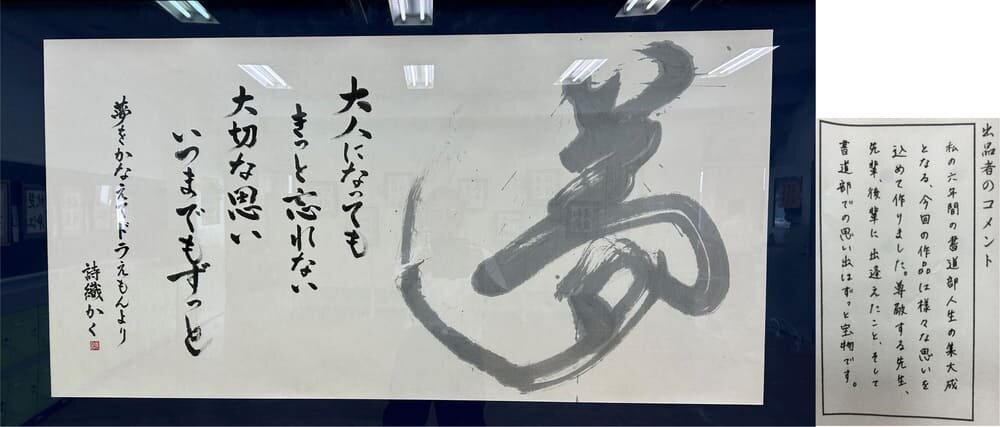 夢
大人になっても
きっと忘れない
大切な思い
いつまでもずっと
夢をかなえてドラえもんより
詩織かく
出品者のコメント
私の六年間の書道部人生の集大成
となる、今回の作品は様々な思いを
込めて作りました。尊敬する先生、
先輩、後輩に出逢えたこと、そして
書道部での思い出はずっと宝物です。